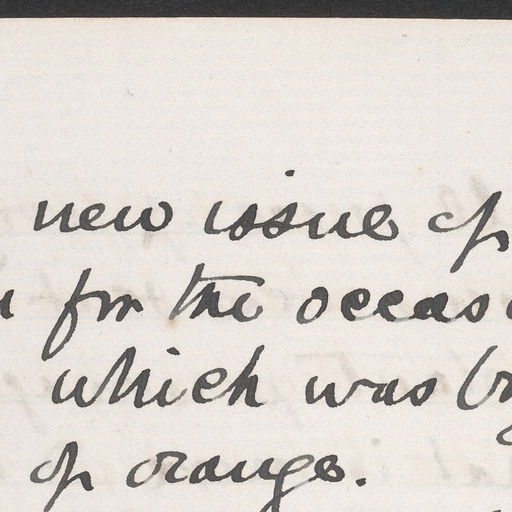 new issue of
for the occas
which was
of orange.